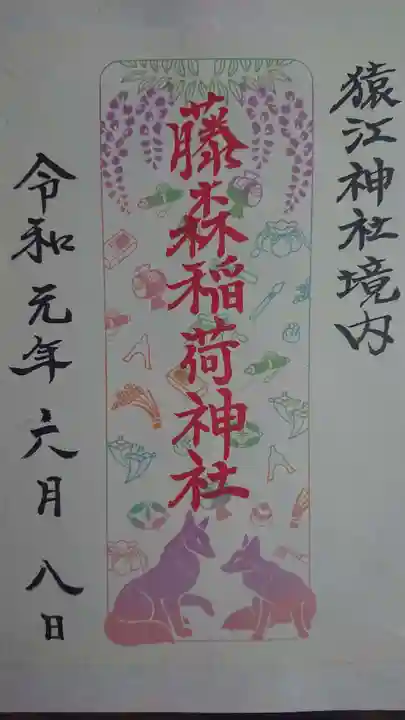 猿江神社境内
藤森稲荷神社
令和元年六月八日